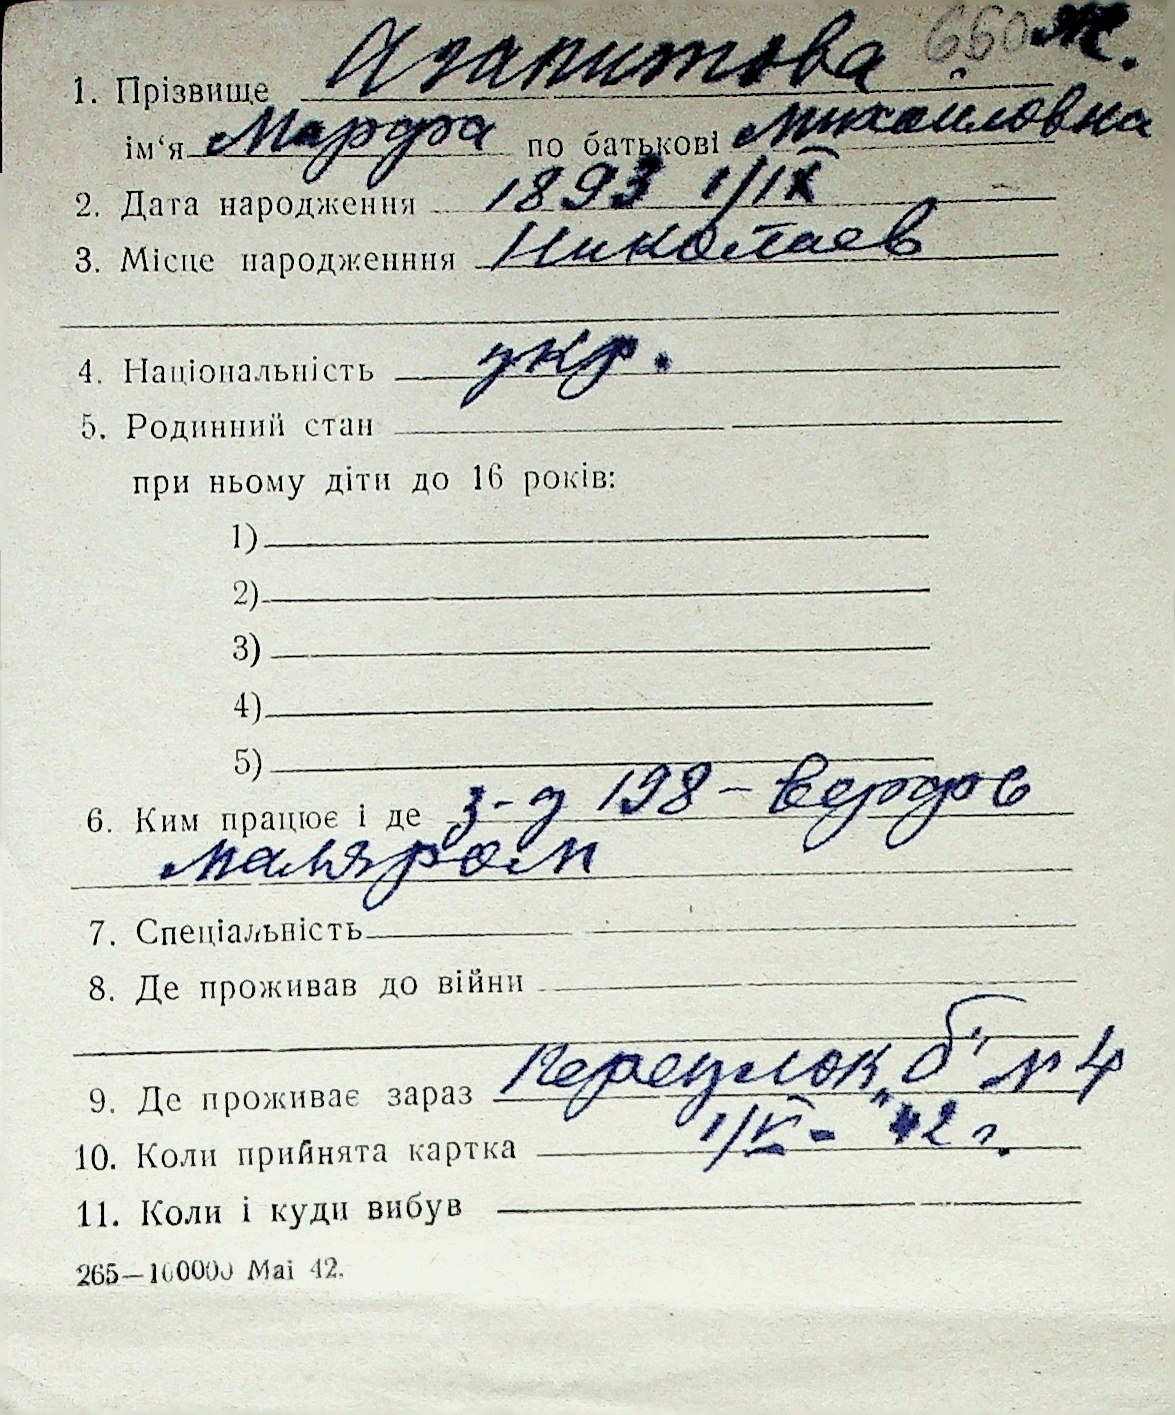 650 Ж.
1. Прізвище Агапитова
ім'я Марфа по батькові Михайловна
2. Дата народження 1893 1/IX
3. Місце народженння Николаев
4. Національність укр.
5. Родинний стан
при ньому діти до 16 років:
1)
2)
3)
4)
5)
6. Ким працює і де з-д 198 – Верфов
маляром
7. Спеціальність
8. Де проживав до війни
9. Де проживає зараз Переулок "б" № 4
10. Коли прийнята картка 42 г.
11. Коли і куди вибув
265—100000 Mai 42.